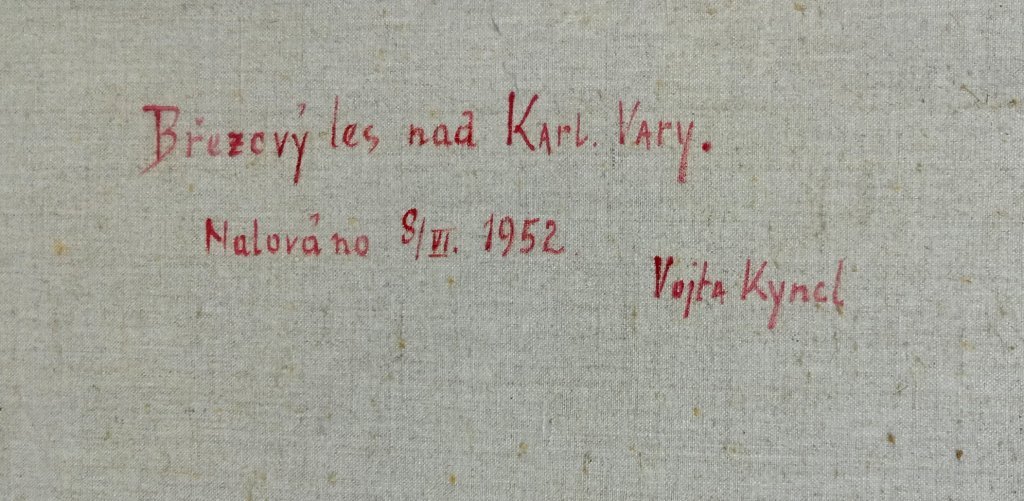 Březový les nad Karl. Vary.
Malováno 8/VI. 1952
Vojta Kyncl